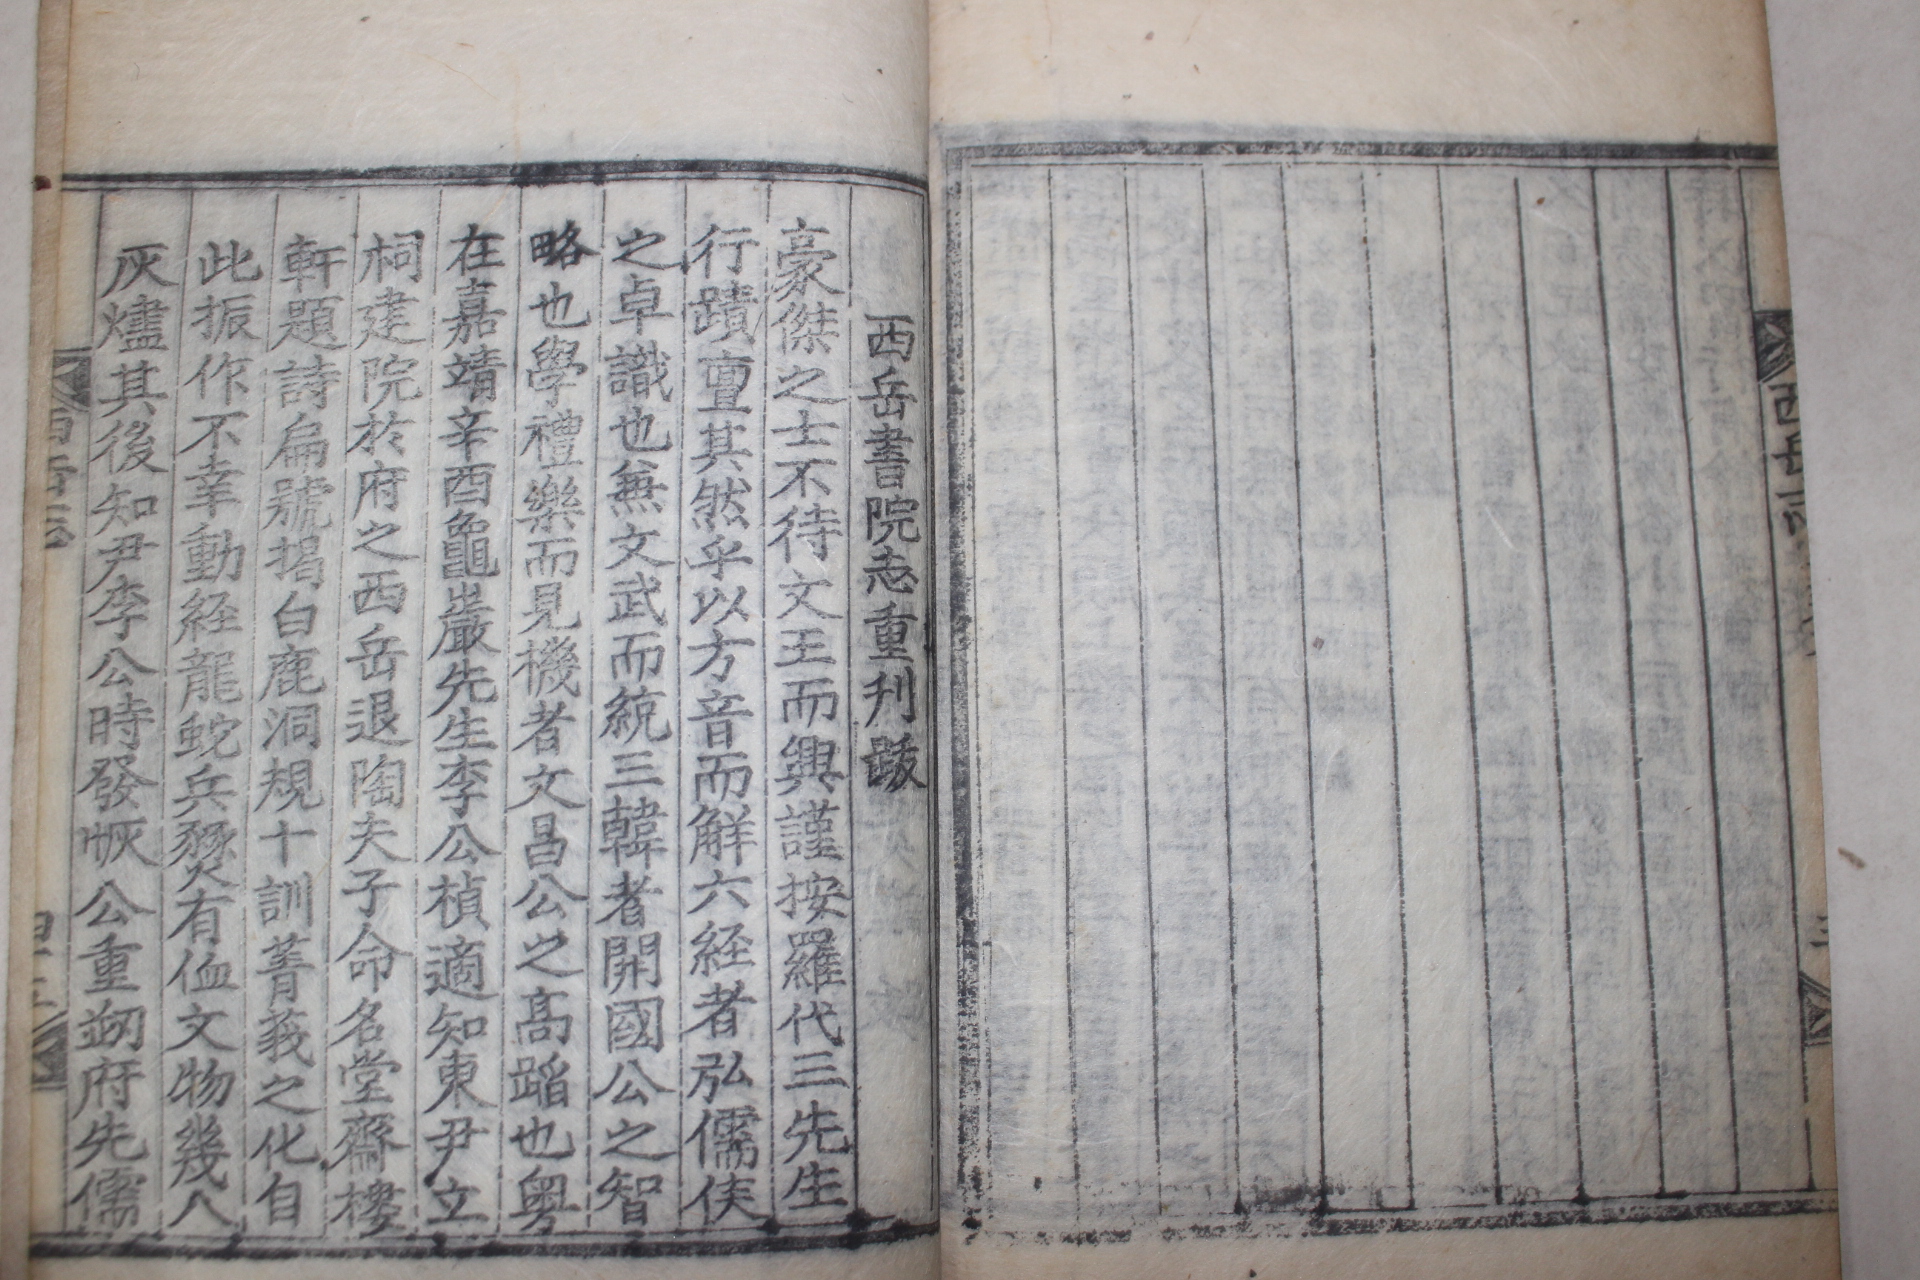 西岳書院志重刊跋
豪傑之士不待文王而興謹按羅代三先生
行蹟亶其然乎以方音而解六経者弘儒侯
之卓識也兼文武而統三韓者開國公之智
略也學禮樂而見機者文昌公之髙蹈也粤
在嘉靖辛酉龜巖先生李公楨適知東尹立
祠建院於府之西岳退陶夫子命名堂齋樓
軒題詩扁號揭白鹿洞規十訓菁莪之化自
此振作不幸動経龍蛇兵燹有侐文物幾入
灰燼其後知尹李公時發恢公重刱府先儒
西岳志